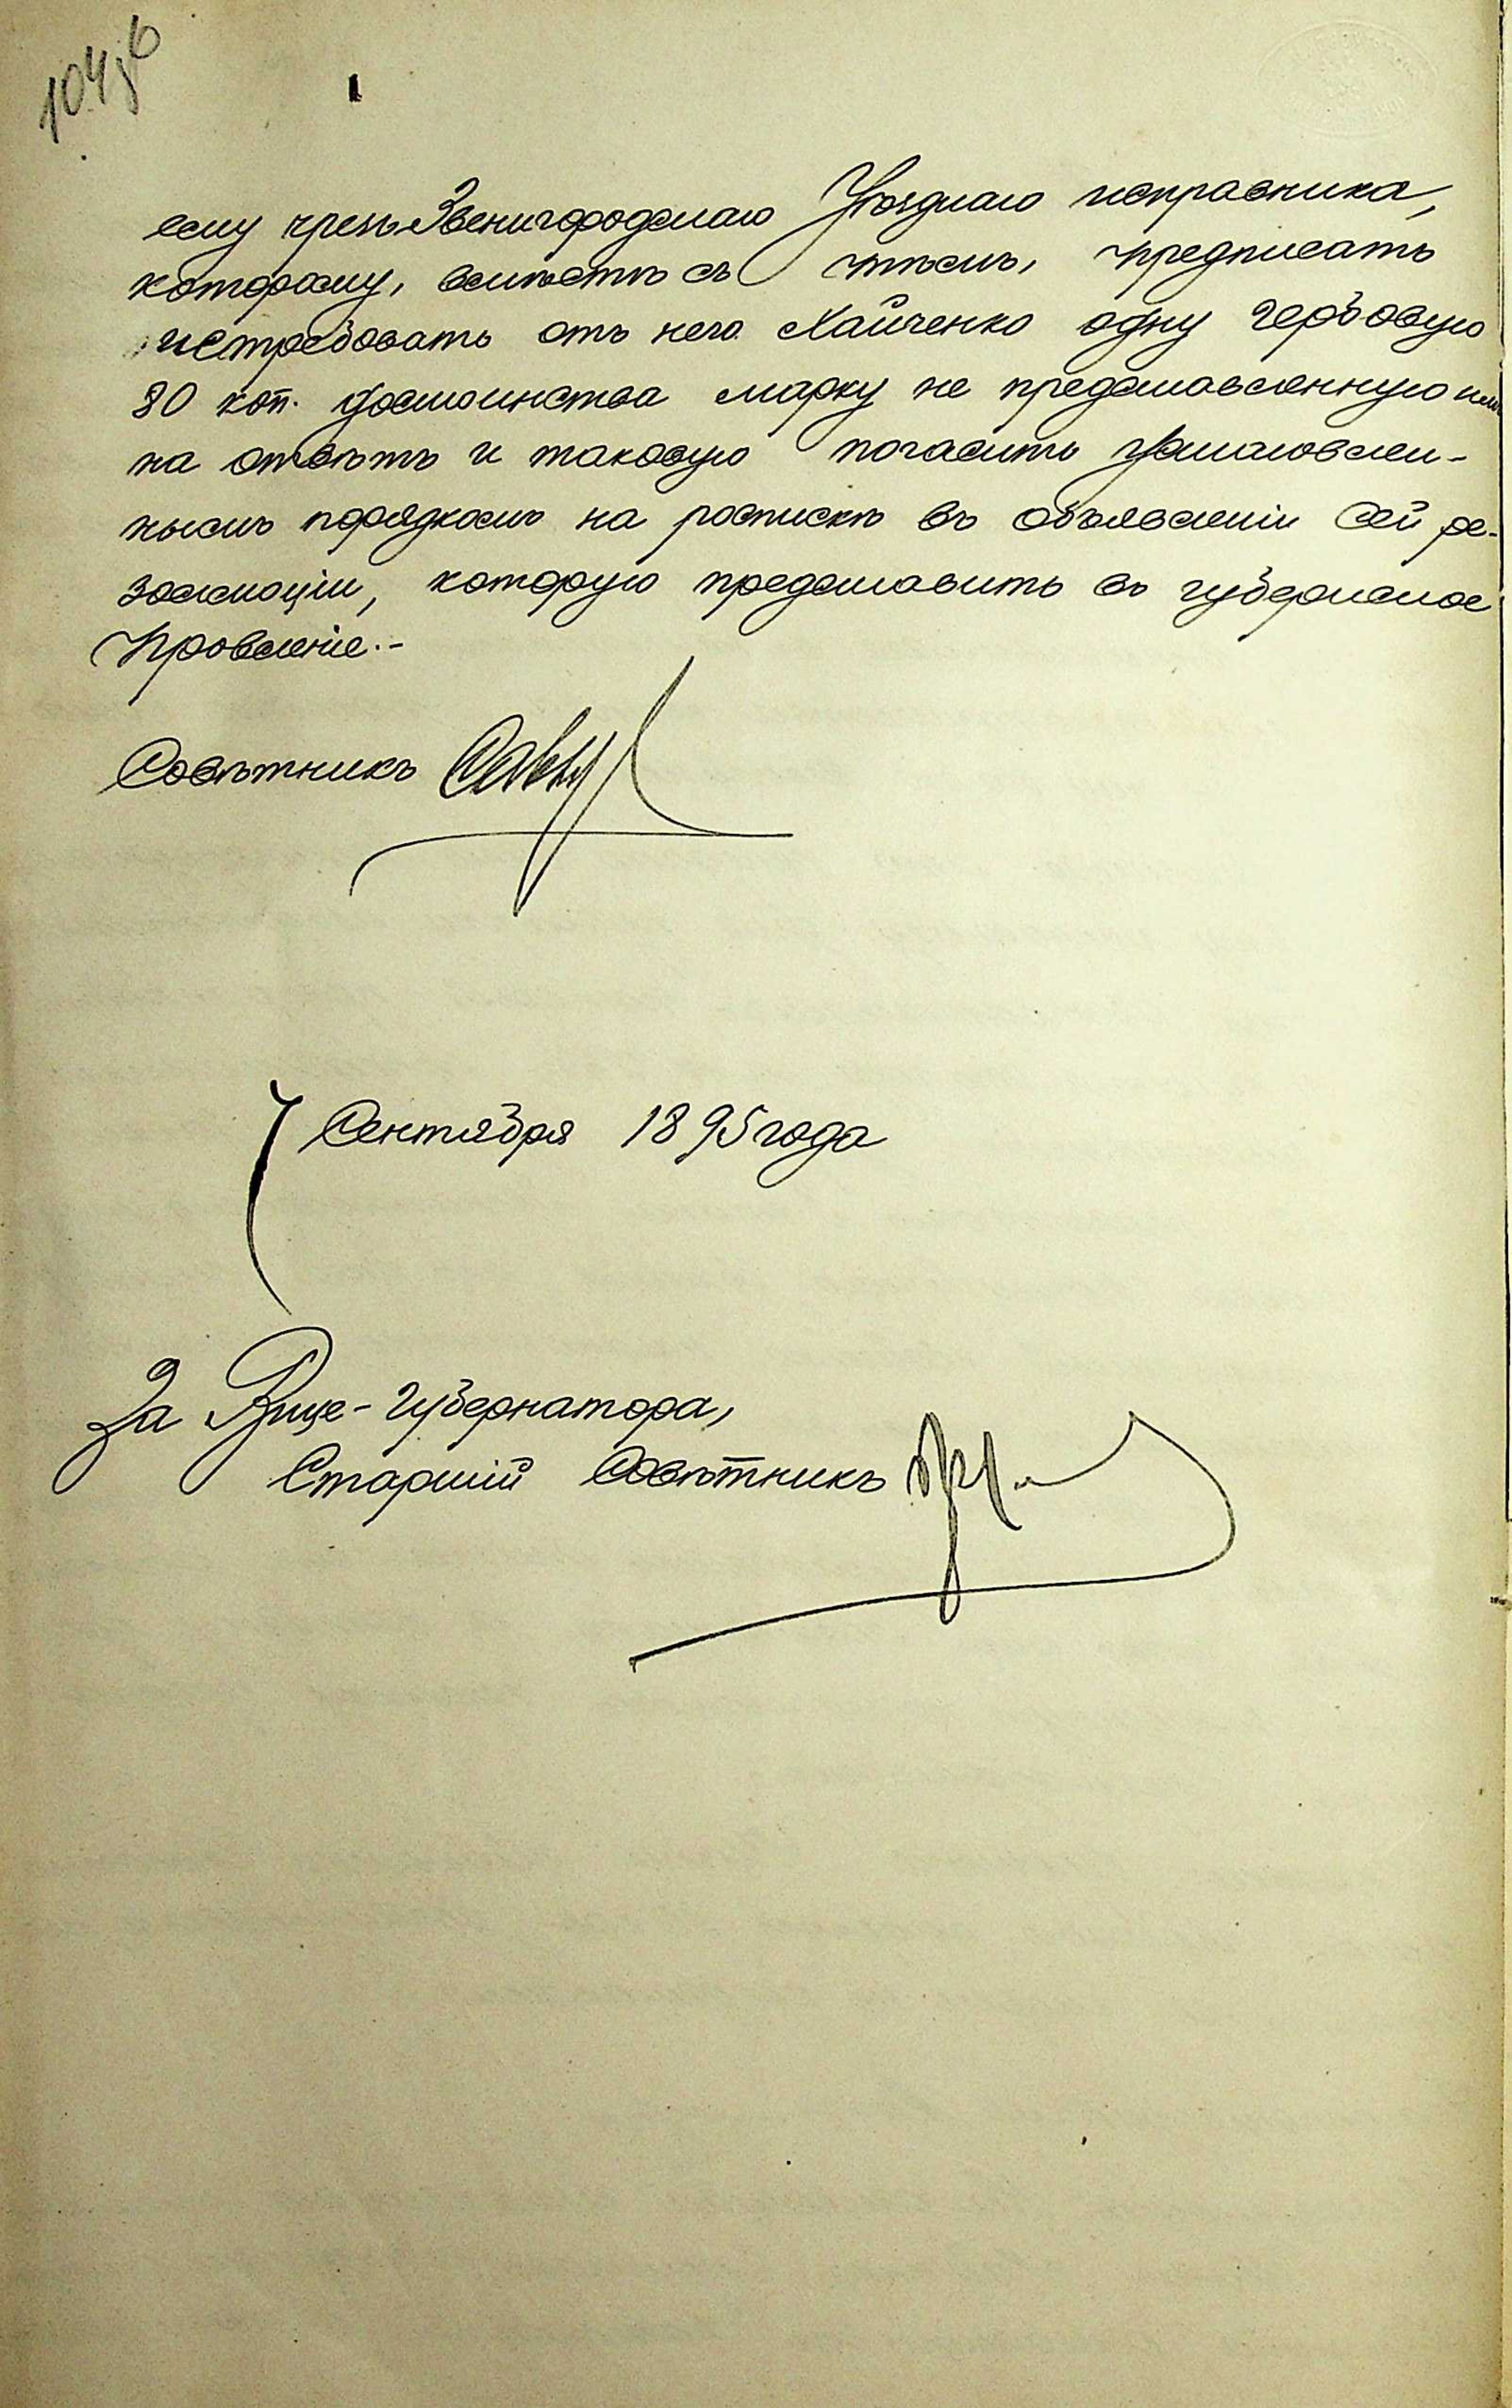 ему чрезъ Звенигородскаго Уѣзднаго исправника,
которому, вмѣстѣ съ тѣмъ, предписать
истребовать отъ него Хайченко одну гербовую
80 коп. достоинства марку не представленную имъ
на отвѣтъ и таковую погасить установлен-
нымъ порядкомъ на роспискѣ въ объявленіи сей ре-
золюціи, которую представить въ губернское
Правленіе.-
Совѣтникъ
7 Сентября 1895 года
За Вице-Губернатора,
Старшій Совѣтникъ